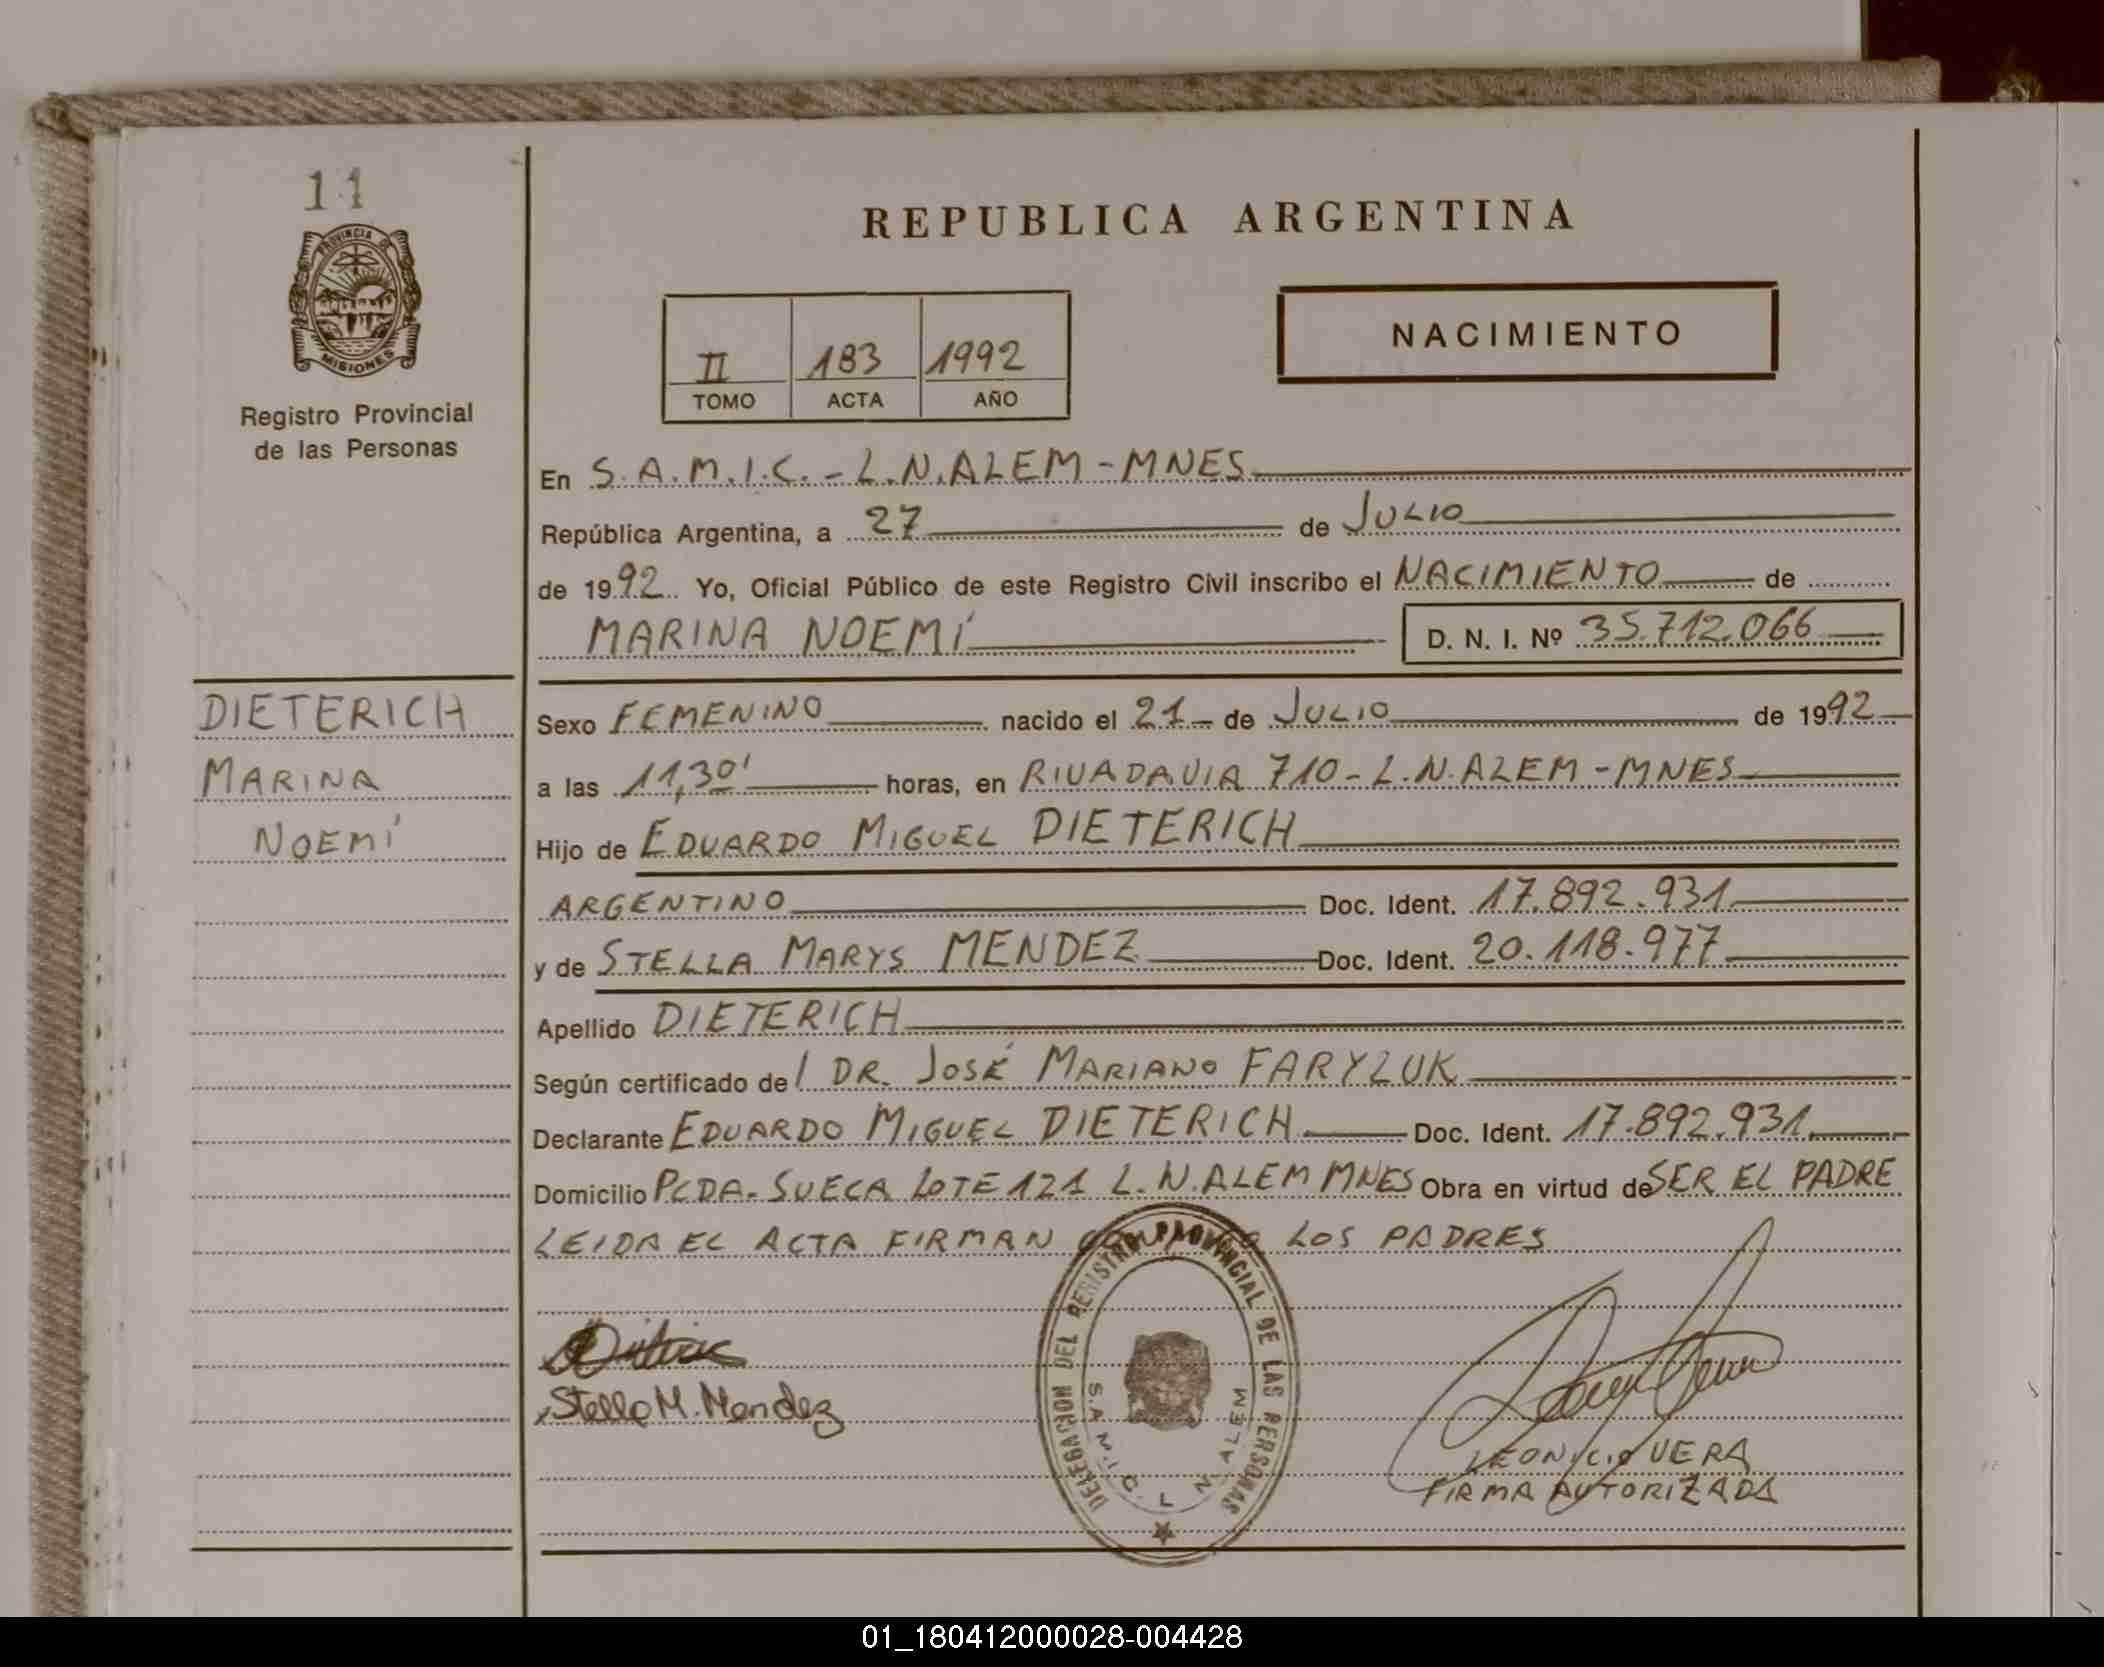 11
PROVINCIA DE
MISIONES
Registro Provincial
de las Personas
REPUBLICA ARGENTINA
II 183 1992
TOMO ACTA AÑO
NACIMIENTO
En S.A.M.I.C. - L.N.ALEM - MNES
República Argentina, a 27 de JULIO
de 1992 Yo, Oficial Público de este Registro Civil inscribo el NACIMIENTO de
MARINA NOEMÍ D. N. I. Nº 35.712.066
DIETERICH
MARINA
NOEMÍ
Sexo FEMENINO nacido el 21 de JULIO de 1992
a las 11,30' horas, en RIVADAVIA 710 - L.N.ALEM - MNES
Hijo de EDUARDO MIGUEL DIETERICH
ARGENTINO Doc. Ident. 17.892.931
y de STELLA MARYS MENDEZ Doc. Ident. 20.118.977
Apellido DIETERICH
Según certificado de DR. JOSÉ MARIANO FARYLUK
Declarante EDUARDO MIGUEL DIETERICH Doc. Ident. 17.892.931
Domicilio PCDA. SUECA LOTE 121 L.N.ALEM MNES Obra en virtud de SER EL PADRE
LEIDA EL ACTA FIRMAN LOS PADRES
DELEGACION DEL REGISTRO PROVINCIAL DE LAS PERSONAS
S.A.M.I.C. L N ALEM
Stella M. Mendez
LEONICIO VERA
FIRMA AUTORIZADA
01_180412000028-004428